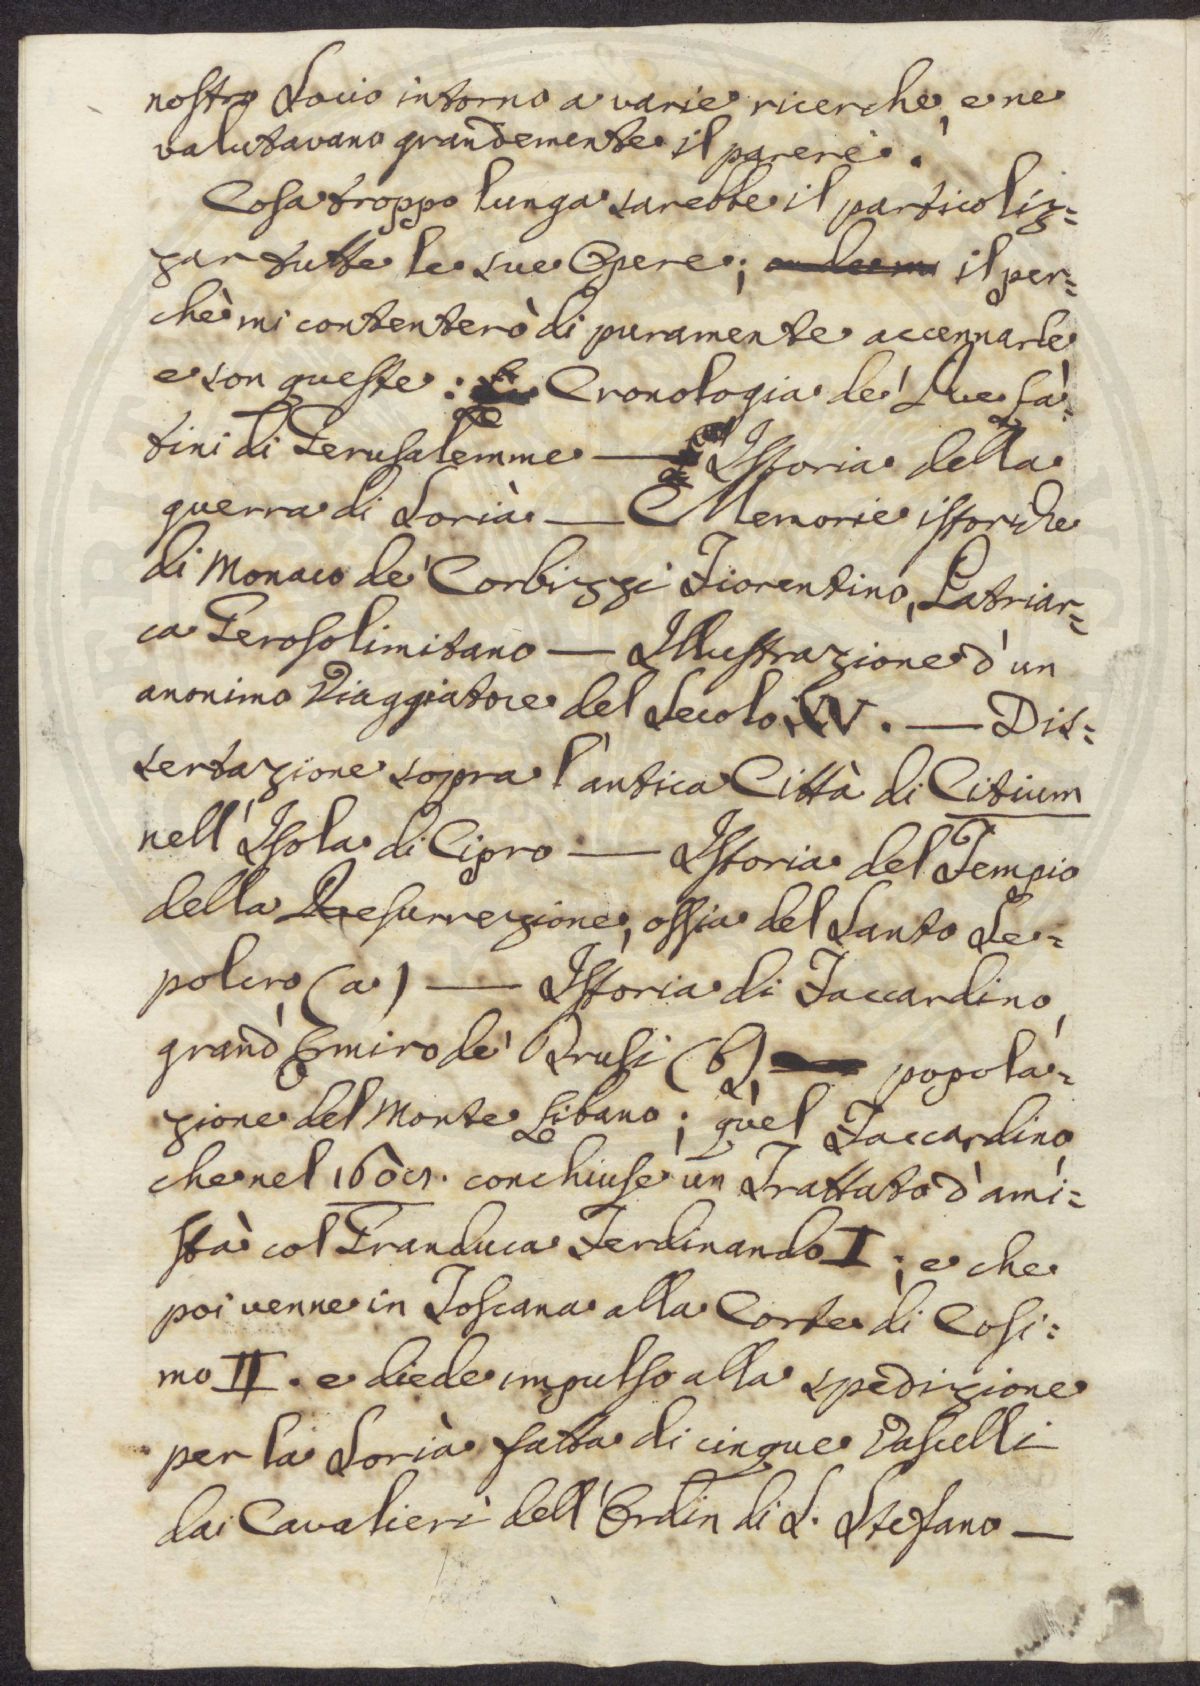 nostro Socio intorno a varie ricerche, e ne
valutavano grandemente il parere.
Cosa troppo lunga sarebbe il particoliz=
zar tutte le sue Opere; il per=
chè mi contenterò di puramente accennarle
e son queste: Cronologia de' Rè La=
tini di Gerusalemme — Istoria della
guerra di Soria — Memorie istoriche
di Monaco de' Corbizzi Fiorentino, Patriar=
ca Gerosolimitano — Illustrazione d'un
anonimo Viaggiatore del Secolo XV. — Dis=
sertazione sopra l'antica Città di Citium
nell'Isola di Cipro — Istoria del Tempio
della Resurrezione, ossia del Santo Se=
polcro (a) — Istoria di Faccardino,
grand'Emiro de' Drusi (b) popola=
zione del Monte Libano; quel Faccardino
che nel conchiuse un Trattato d'ami=
stà col Granduca Ferdinando I; e che
poi venne in Toscana alla Corte di Cosi=
mo II. e diede impulso alla spedizione
per la Soria fatta di cinque Vascelli
dai Cavalieri dell'Ordin di S. Stefano —